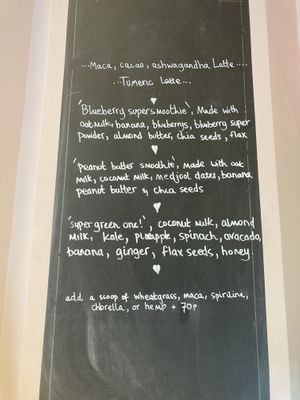 ...Maca, cacao, ashwagandha Latte....
...Tumeric Latte...
'Blueberry supersmoothie', Made with
oat milk, banana, bluberrys, bluberry super
powder, almond butter, chia seeds, flax
'peanut butter smoothie', made with oat
milk, coconut milk, medjool dates, banana
peanut butter & chia seeds
'super green one!', coconut milk, almond
milk, kale, pineapple, spinach, avacado,
banana, ginger, flax seeds, honey
add a scoop of wheatgrass, maca, spirulina,
chlorella, or hemp + 70p